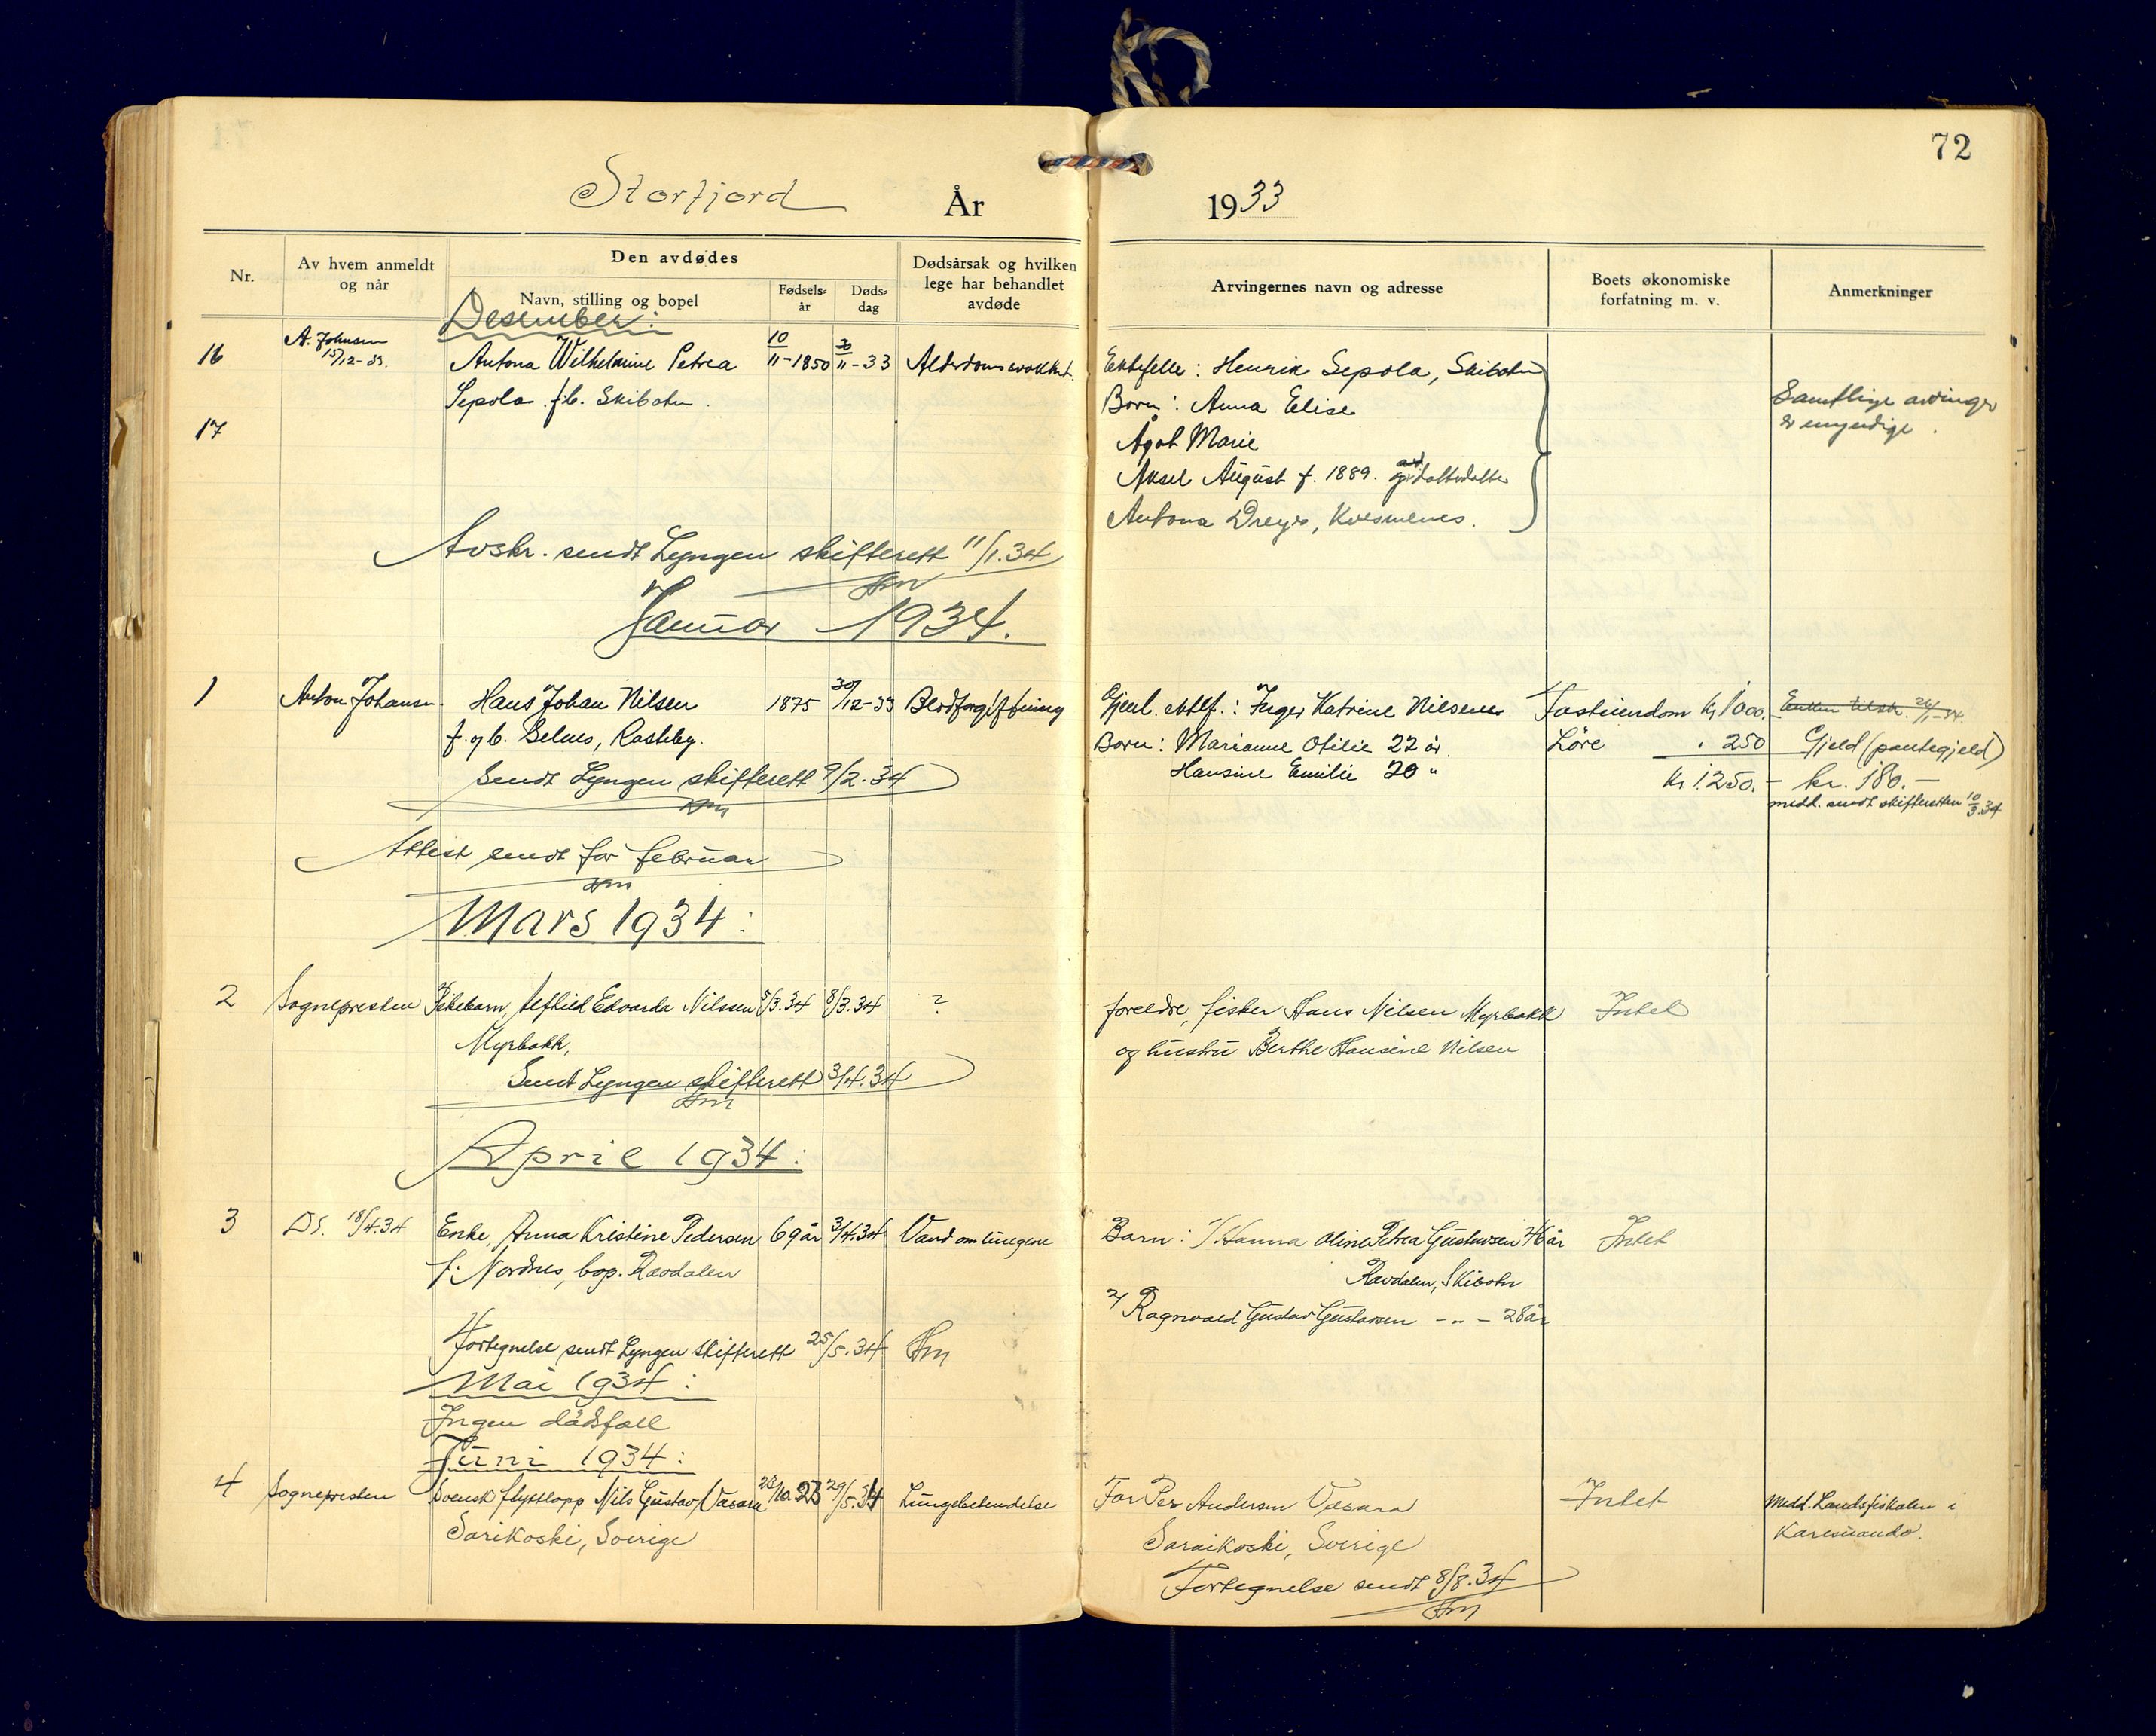 72
Storfjord
År 1933
Nr.
Av hvem anmeldt og når
Den avdødes
Navn, stilling og bopel
Fødsels-år
Døds-dag
Dødsårsak og hvilken lege har behandlet avdøde
Arvingernes navn og adresse
Boets økonomiske forfatning m. v.
Anmerkninger
Desember:
16 A. Johnsen 15/12-33. Antona Wilhelmine Petrea 10/11-1850 30/11-33 Alderdomssvakhet. Ektefelle: Henrik Sepola, Skibotn
Sepola f.b. Skibotn. Born: Anna Elise Samtlige arvinger
17 Ågot Marie er myndige.
Aksel August f. 1889.
Antona Dreyer, Kvesmenes.
Avskr. sendt Lyngen skifterett 11/1.34
Hm
Januar 1934.
1 Anton Johansen Hans Johan Nilsen 1875 30/12-33 Blodforgiftning Gjenl. ektef.: Inger Katrine Nilsen Fasteiendom kr 1000. Enken tilskr. 24/1-34.
f. og b. Selnes, Rasteby. Born: Marianne Otilie 22 år Löre 250 Gjeld (pantegjeld)
Hansine Emilie 20 " Kr 1.250.- kr. 180.-
Sendt Lyngen skifterett 9/2.34 medd. sendt skifteretten 10/3.34
Hm
Attest sendt for februar
Hm
Mars 1934:
2 Sognepresten Pikebarn, Alfhild Edvarda Nilssen 5/3.34 8/3.34 ? foreldre, fisker Hans Nilsen Myrbakk Intet
Myrbakk, og hustru Berthe Hansine Nilsen
Sendt Lyngen skifterett 3/4.34
Hm
April 1934:
3 Ds. 18/4.34 Enke, Anna Kristine Pedersen 69 år 3/4.34 Vand om lungene Barn: 1/ Hanna Oline Petrea Gustavsen 46 år Intet
f. Nordnes, bop. Ravdalen Ravdalen, Skibotn
2/ Ragnvald Gustav Gustavsen - " - 28 år
Fortegnelse sendt Lyngen skifterett 25/5.34 Hm
Mai 1934:
Ingen dödsfall
Juni 1934:
4 Sognepresten Svensk flyttlapp Nils Gustav Vasara 28/10.23 29/5.34 Lungebetendelse Far Per Andersen Vasara Intet Medd. Landsfiskalen i
Sarikoski, Sverige Saraikoski, Sverige Karesuando.
Fortegnelse sendt 8/8.34
Hm